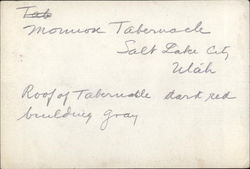 Tab
Mormon Tabernacle
Salt Lake City
Utah
Roof of Tabernacle dark red
building gray